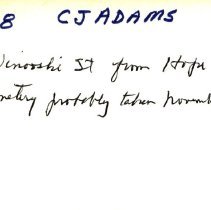 8 CJ ADAMS
Winooski St from Hope
metery probably taken Novemb